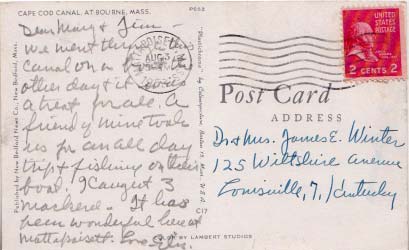 CAPE COD CANAL, AT BOURNE, MASS.
Dear Mary & Jim -
We went through the
canal on a boat the
other day & it was
a treat for all. A
friend of mine took
us for an all day
trip & fishing on their
boat. I caught 3
mackerel. It has
been wonderful here at
Mattapoisett. Love
Published by New Bedford News Co., New Bedford, Mass.
"Plastichrome" by Colourpicture, Boston 15, Mass., U.S.A.
BY LAMBERT STUDIOS
MATTAPOISETT
AUG 3
MASS.
UNITED
STATES
POSTAGE
2 CENTS 2
Post Card
ADDRESS
Dr & Mrs. James E. Winter
125 Wiltshire Avenue
Louisville, 7, Kentucky